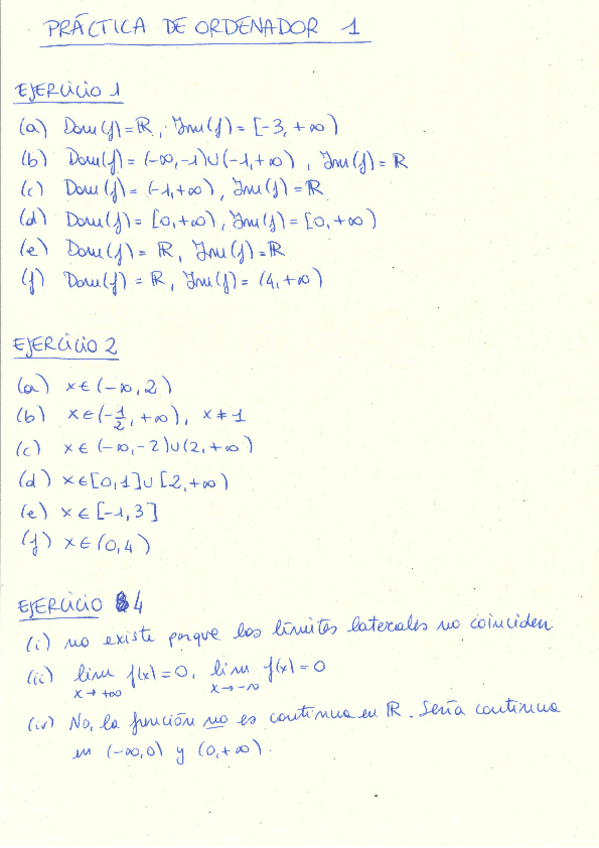 PRÁCTICA DE ORDENADOR 1
EJERCICIO 1
(a) Dom(f)=ℝ, Im(f)=[-3,+∞)
(b) Dom(f)=(-∞,-1)∪(-1,+∞), Im(f)=ℝ
(c) Dom(f)=(-1,+∞), Im(f)=ℝ
(d) Dom(f)=[0,+∞), Im(f)=[0,+∞)
(e) Dom(f)=ℝ, Im(f)=ℝ
(f) Dom(f)=ℝ, Im(f)=(4,+∞)
EJERCICIO 2
(a) x∈(-∞,2)
(b) x∈(-1/2,+∞), x≠1
(c) x∈(-∞,-2)∪(2,+∞)
(d) x∈[0,1]∪[2,+∞)
(e) x∈[-1,3]
(f) x∈(0,4)
EJERCICIO 4
(i) no existe porque los límites laterales no coinciden
(ii) lim x→+∞ f(x)=0, lim x→-∞ f(x)=0
(iv) No, la función no es continua en ℝ. Sería continua
en (-∞,0) y (0,+∞).